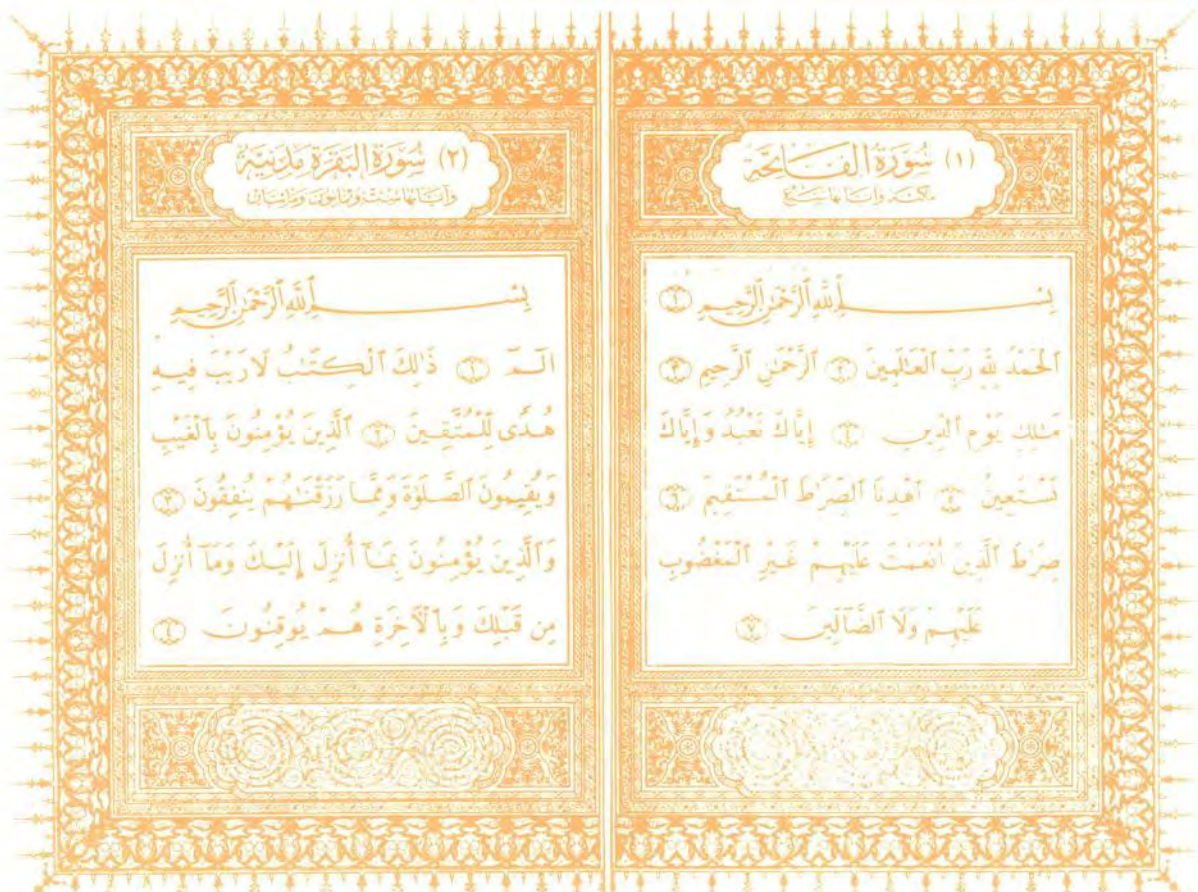 (١) سُورَةُ الفَاتِحَة
مكية وآياتها سبع
بِسْمِ ٱللَّهِ ٱلرَّحْمَٰنِ ٱلرَّحِيمِ ١
ٱلْحَمْدُ لِلَّهِ رَبِّ ٱلْعَٰلَمِينَ ٢ ٱلرَّحْمَٰنِ ٱلرَّحِيمِ ٣
مَٰلِكِ يَوْمِ ٱلدِّينِ ٤ إِيَّاكَ نَعْبُدُ وَإِيَّاكَ
نَسْتَعِينُ ٥ ٱهْدِنَا ٱلصِّرَٰطَ ٱلْمُسْتَقِيمَ ٦
صِرَٰطَ ٱلَّذِينَ أَنْعَمْتَ عَلَيْهِمْ غَيْرِ ٱلْمَغْضُوبِ
عَلَيْهِمْ وَلَا ٱلضَّآلِّينَ ٧
(٢) سُورَةُ البَقَرَةِ مَدَنِيَّة
وآياتها ست وثمانون ومائتان
بِسْمِ ٱللَّهِ ٱلرَّحْمَٰنِ ٱلرَّحِيمِ
الٓمٓ ١ ذَٰلِكَ ٱلْكِتَٰبُ لَا رَيْبَ فِيهِ
هُدًى لِّلْمُتَّقِينَ ٢ ٱلَّذِينَ يُؤْمِنُونَ بِٱلْغَيْبِ
وَيُقِيمُونَ ٱلصَّلَوٰةَ وَمِمَّا رَزَقْنَٰهُمْ يُنفِقُونَ ٣
وَٱلَّذِينَ يُؤْمِنُونَ بِمَآ أُنزِلَ إِلَيْكَ وَمَآ أُنزِلَ
مِن قَبْلِكَ وَبِٱلْأَخِرَةِ هُمْ يُوقِنُونَ ٤